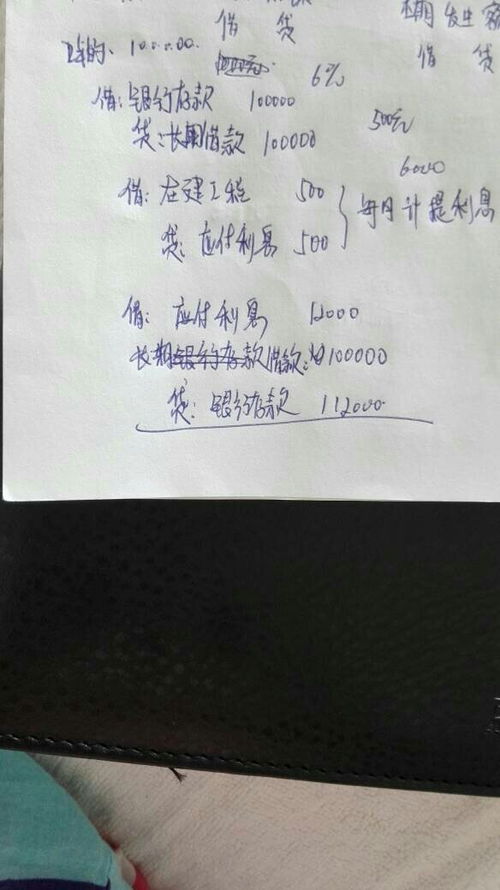 借 贷 本期发生额
借 贷
100000.
6%
借：银行存款 100000
贷：长期借款 100000
500元
6000
借：在建工程 500
贷：应付利息 500
每月计提利息
借：应付利息 12000
长期借款：100000
贷：银行存款 112000